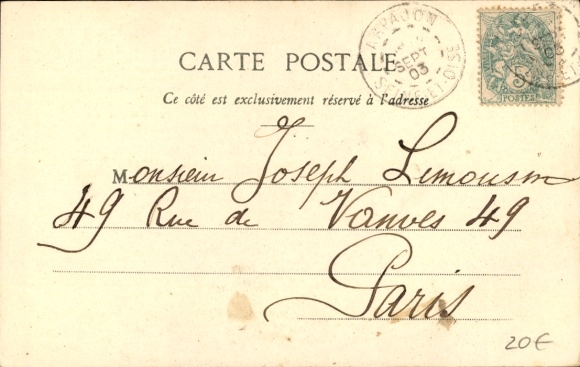 ARPAJON
SEPT
03
SEINE-ET-OISE
5
POSTES
CARTE POSTALE
Ce côté est exclusivement réservé à l'adresse
Monsieur Joseph Limousin
49 Rue de Vanves 49
Paris
20€